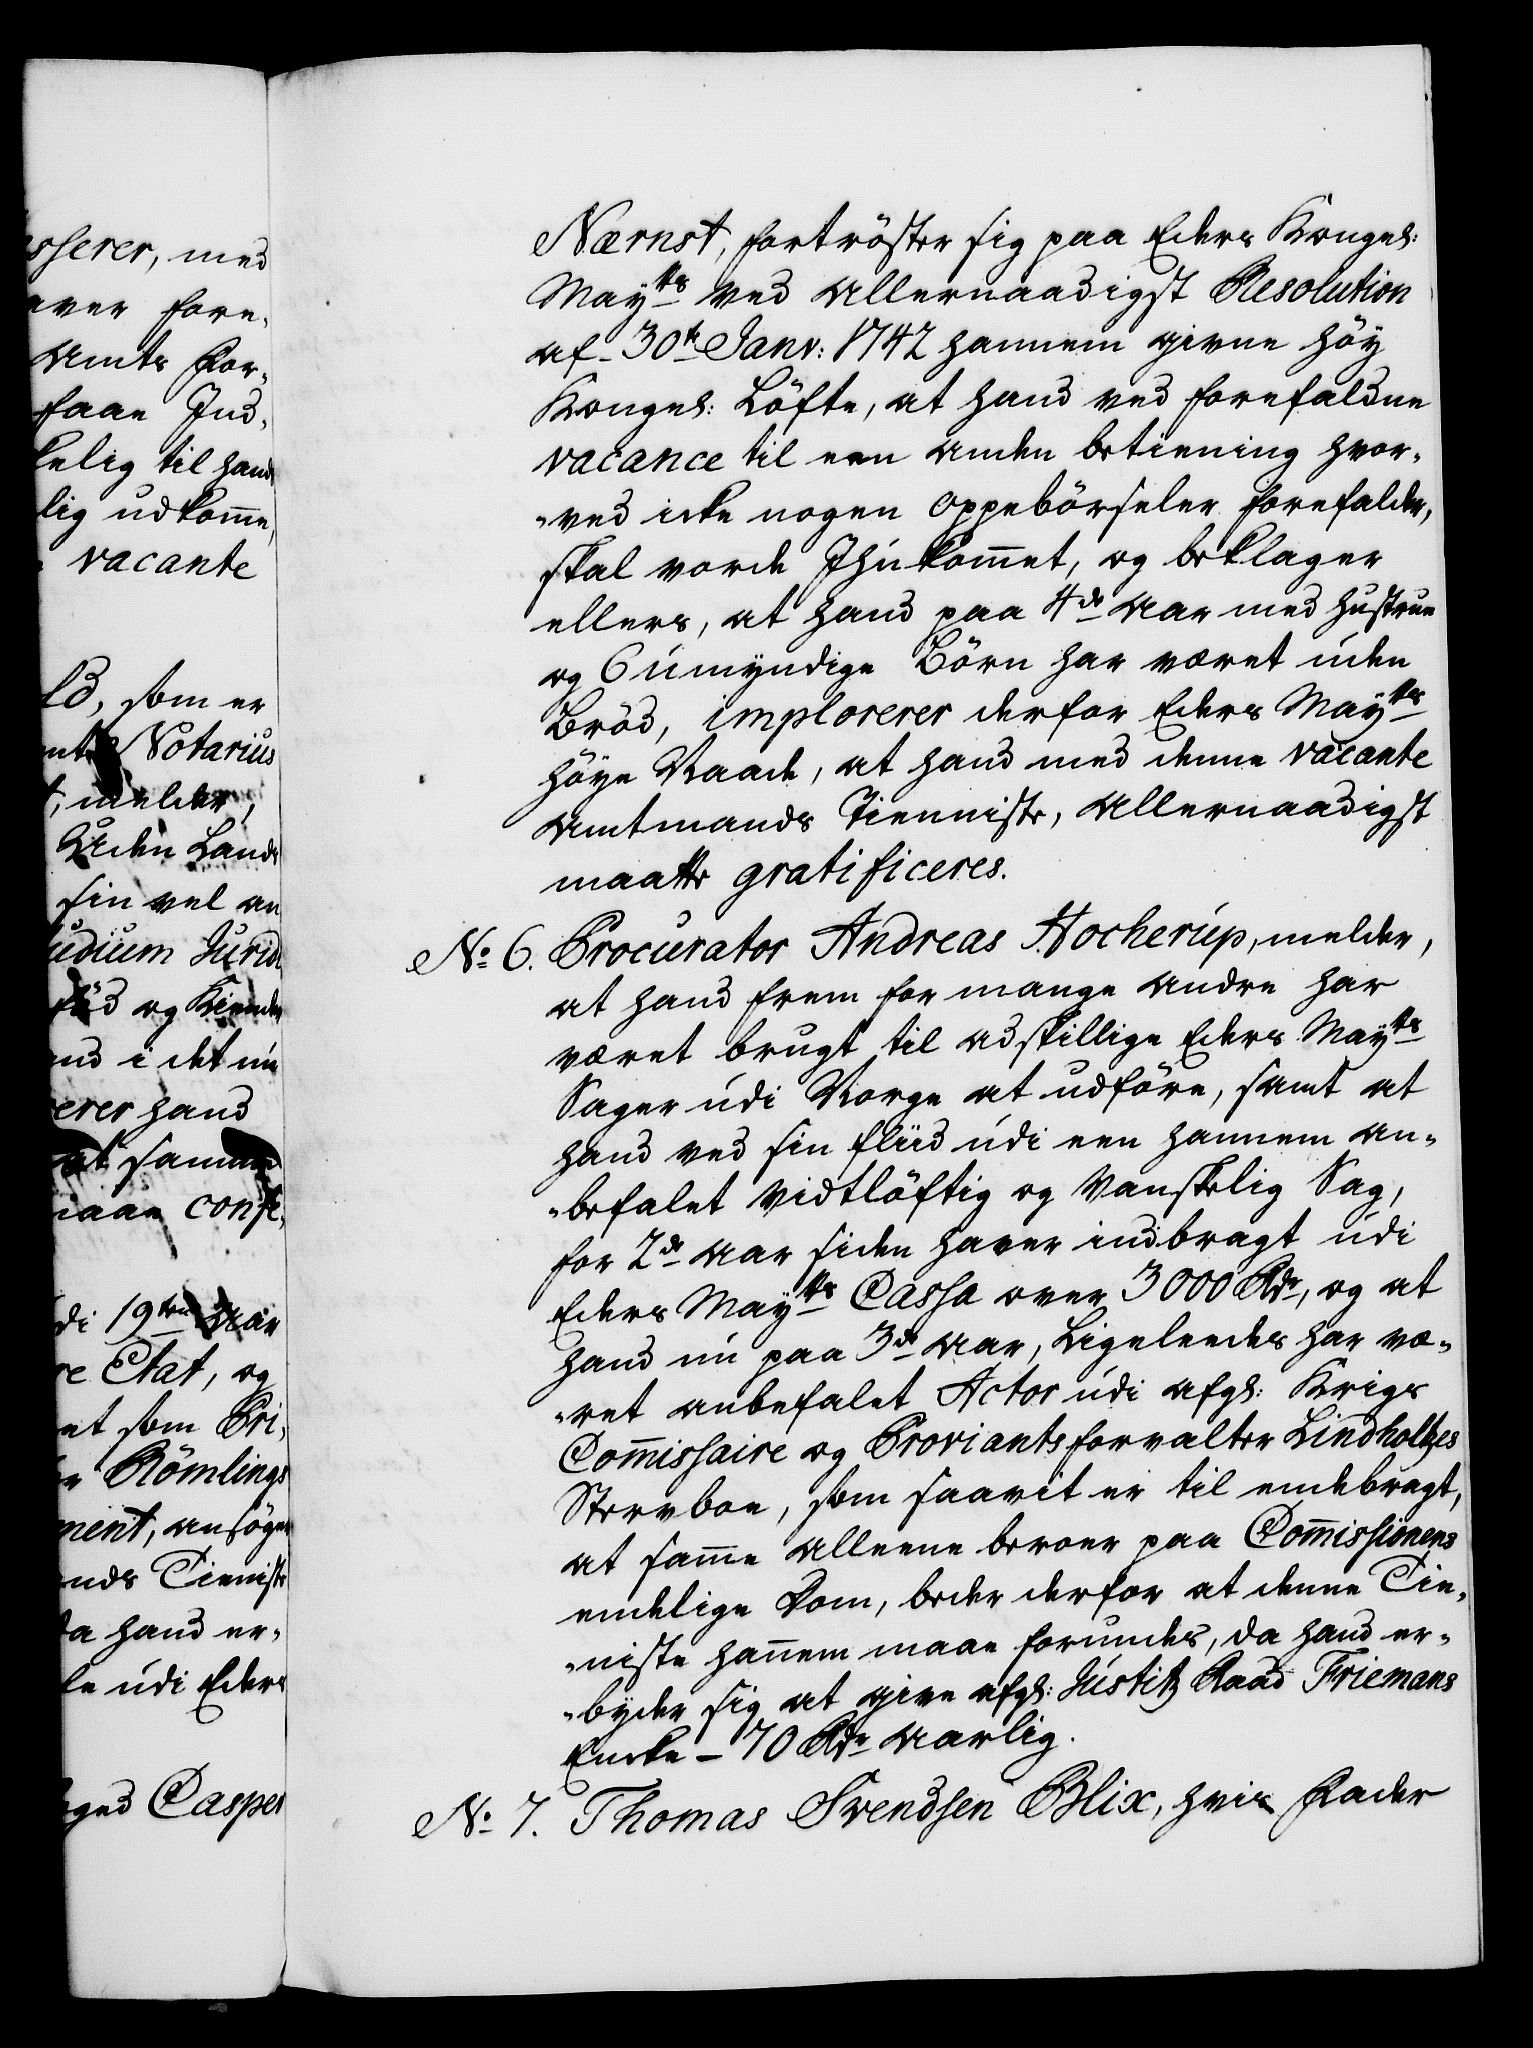 sserer, med
aver fore,
Amts For,
faae Ind,
kelig til hand
lig udkome,
vacante
ld, som er
Notarius
melder,
Uden Lands
sin vel an
udium Jurid.
og Kiender
i det nu
erer hand
at samme
maae confe,
di 19ten Aar
re Etat, og
et som Pri,
Römlings
ment, ansöger
nds Tieniste
da hand er,
le udi Eders
Casper
Nærnst, fortröster sig paa Eders Kongel:
Mayts ved Allernaadigst Resolution
af 30te Janv: 1742 hannem givne höy
Kongel: Löfte, at hand ved forefaldne
vacance til een anden betiening hvor,
„ved icke nogen oppebörseler forefalder,
skal vorde Ihukommet, og beklager
ellers, at hand paa 4de Aar med hustrue
og 6 umyndige Börn har været uden
Bröd, implorerer derfor Eders Mayts
höye Naade, at hand med denne vacante
Amtmands Tienniste, Allernaadigst
maatte gratificeres.
No 6. Procurator Andreas Hocherup, melder,
at hand frem for mange andre har
været brugt til adskillige Eders Mayts
Sager udi Norge at udföre, samt at
hand ved sin fliid udi een hannem an„
„befalet Vidtlöftig og Vanskelig Sag,
for 2de Aar siden haver indbragt udi
Eders Mayts Cassa over 3000 Rdr, og at
hand nu paa 3de Aar, Ligeleedes har væ„
„ret anbefalet Actor udi afgl: Krigs
Commissaire og Proviantsforvalter Lindholtzes
Stervboe, som saavit er til endebragt,
at samme alleene beroer paa Commissionens
endelige Dom, beder derfor at denne Tie„
„niste hannem maae forundes, da hand er„
„byder sig at give afgl: Justitz Raad Friemans
Encke – 70 Rdr Aarlig.
No 7. Thomas Svendsen Blix, hvis Fader